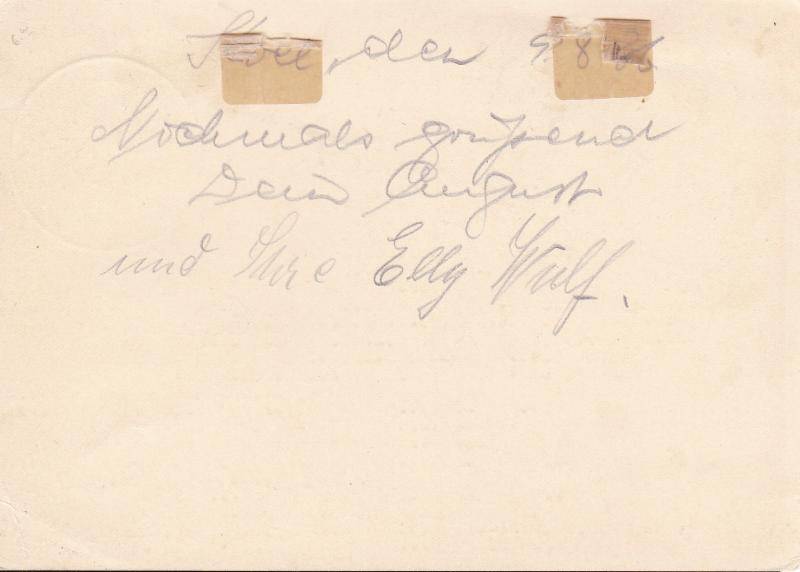 den 9. 8.
Nochmals grüßend
Dein August
und Ihre Elly Wulf.